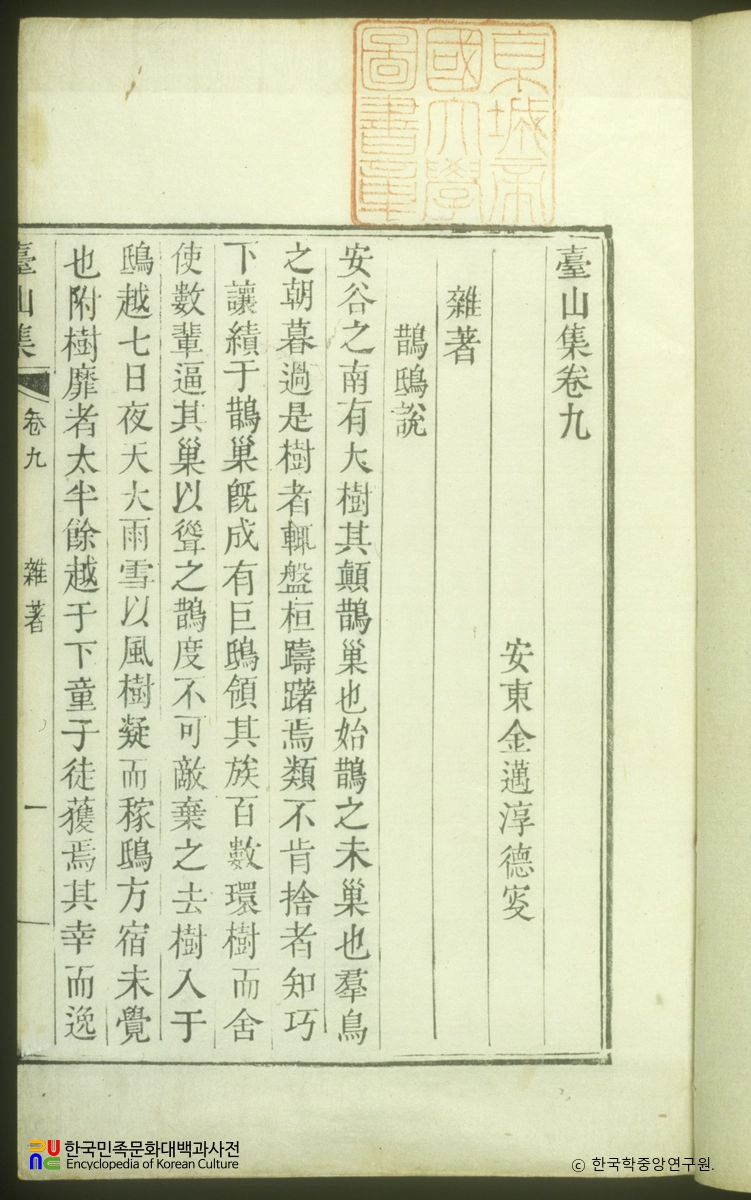 京城帝
國大學
圖書章
臺山集卷九
安東金邁淳德叟
雜著
鵲鴟說
安谷之南有大樹其顛鵲巢也始鵲之未巢也羣鳥
之朝暮過是樹者輒盤桓躊躇焉類不肯捨者知巧
下讓績于鵲巢旣成有巨鴟領其族百數環樹而舍
使數輩逼其巢以聳之鵲度不可敵棄之去樹入于
鴟越七日夜天大雨雪以風樹凝而稼鴟方宿未覺
也附樹靡者太半餘越于下童子徒獲焉其幸而逸
臺山集 卷九 雜著 一
한국민족문화대백과사전
Encyclopedia of Korean Culture
ⓒ 한국학중앙연구원.